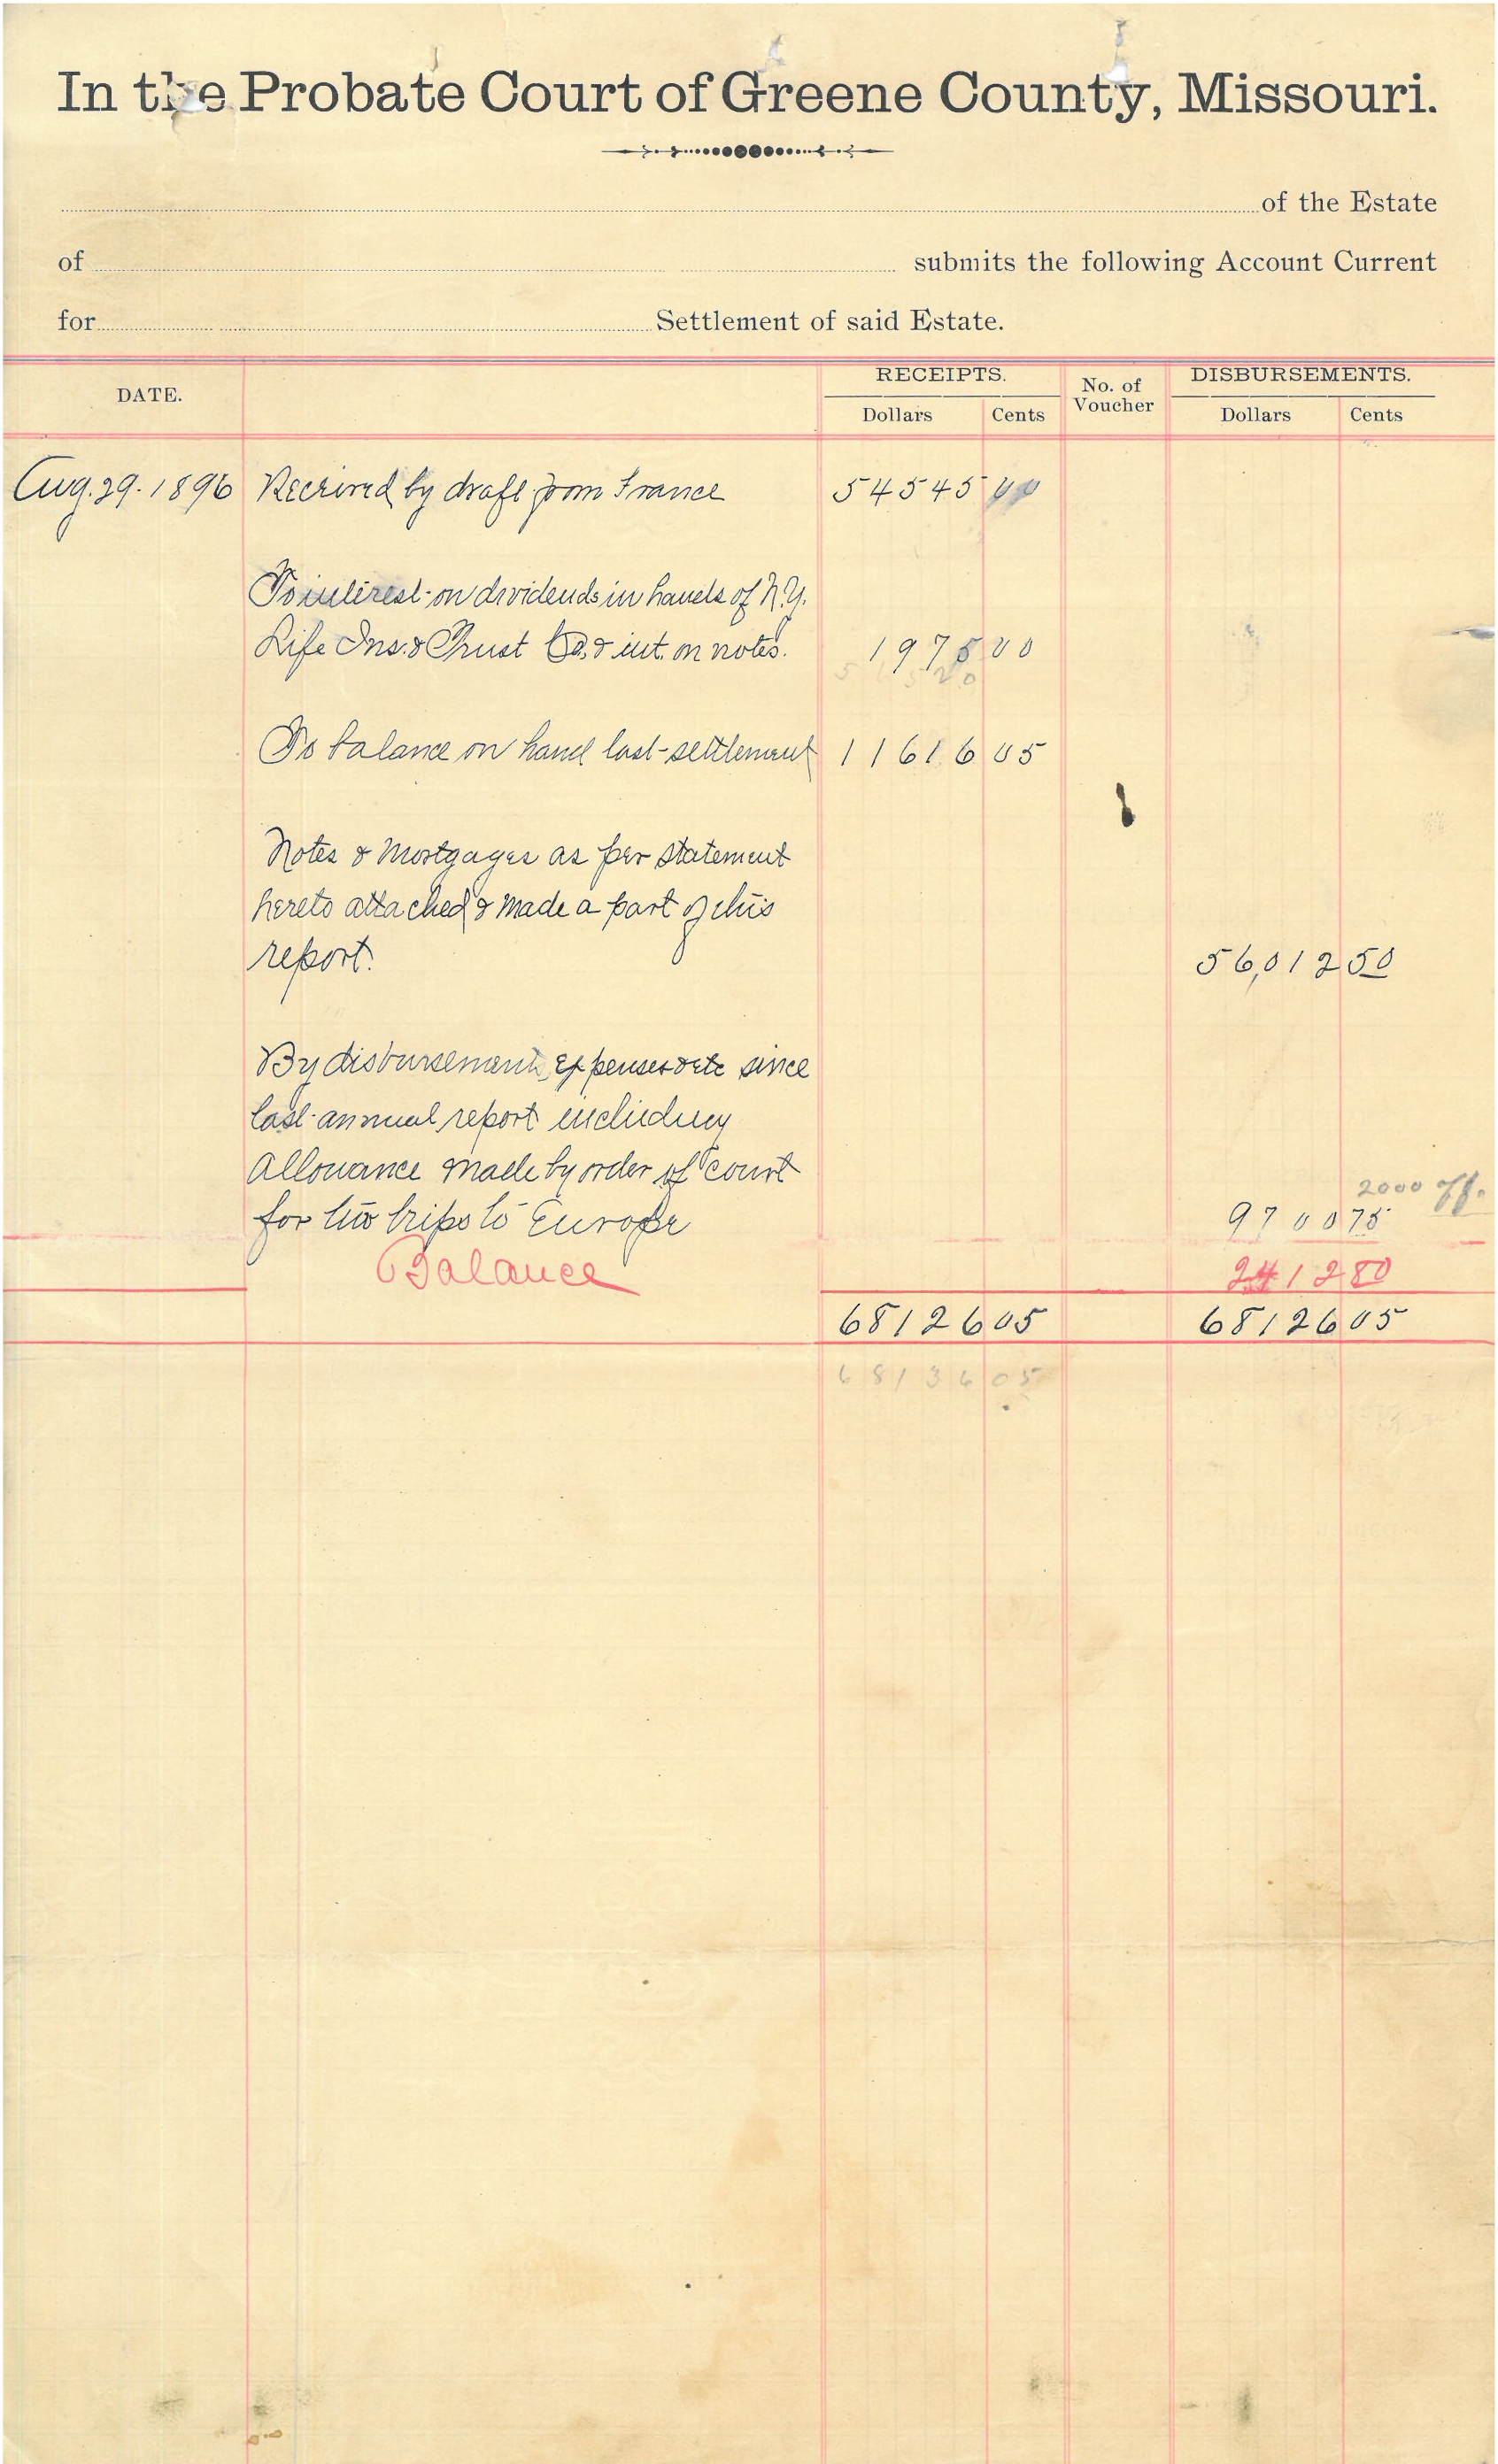 In the Probate Court of Greene County, Missouri.
of the Estate
of submits the following Account Current
for Settlement of said Estate.
DATE. RECEIPTS. No. of Voucher DISBURSEMENTS.
Dollars Cents Dollars Cents
Aug. 29. 1896 Received by draft from France 54545 00
To interest on dividends in hands of N.Y.
Life Ins. & Trust Co. & int. on notes. 1975 00
To balance on hand last settlement 11616 05
Notes & Mortgages as per statement
hereto attached & made a part of this
report. 56,012 50
By disbursements, expenses & etc since
last annual report including
Allowance made by order of court
2000
for two trips to Europe 9700 75
Balance 2412 80
68126 05 68126 05
6813605